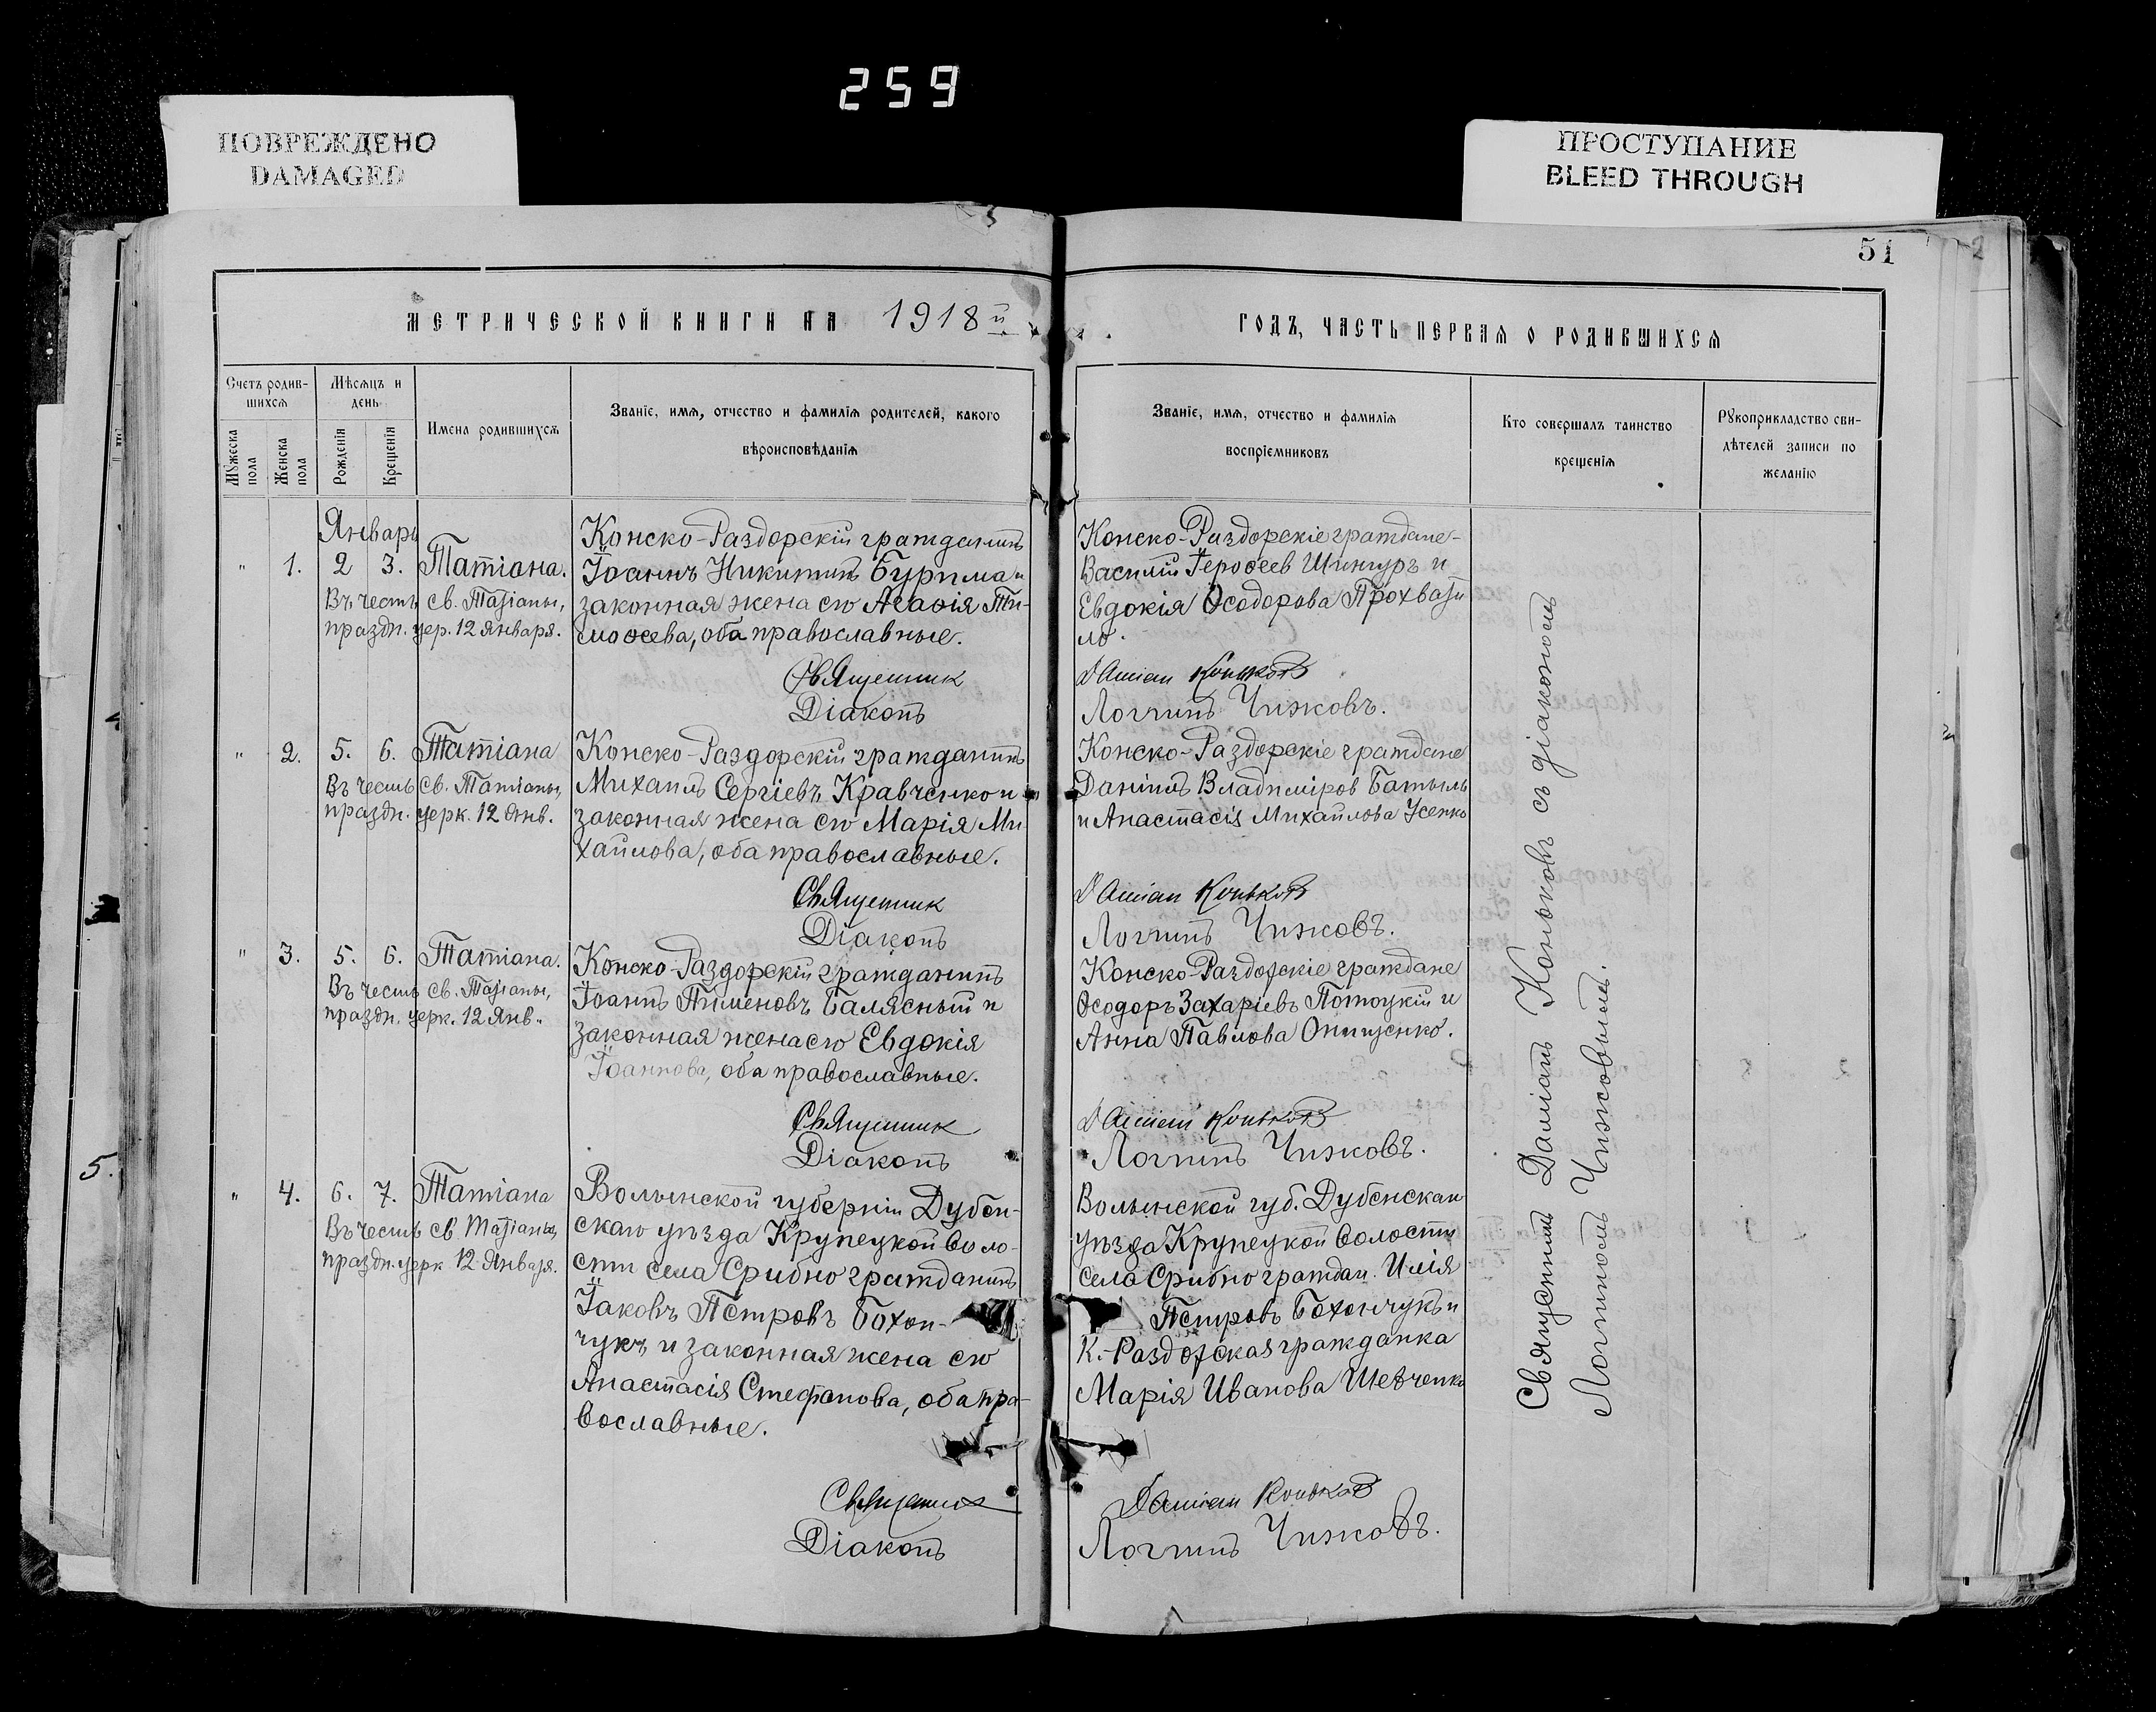 259
ПОВРЕЖДЕНО
DAMAGED
ПРОСТУПАНИЕ
BLEED THROUGH
51
МЕТРИЧЕСКОЙ КНИГИ НА 1918й
ГОДЪ, ЧАСТЬ ПЕРВАЯ О РОДИВШИХСЯ
Счетъ родив-
шихся
Мѣсяцъ и
день
Мужеска
пола
Женска
пола
Рожденія
Крещенія
Имена родившихся
Званіе, имя, отчество и фамилія родителей, какого
вѣроисповѣданія
Званіе, имя, отчество и фамилія
воспріемниковъ
Кто совершалъ таинство
крещенія
Рукоприкладство сви-
дѣтелей записи по
желанію
Январь
" 1. 2 3. Татіана.
Въ честь св. Татіаны,
праздн. цер. 12 Января.
Конско-Раздорскій гражданинъ
Іоаннъ Никитинъ Бурлма и
законная жена его Агаѳія Ти-
моѳеева, оба православные.
Священник
Діаконъ
Конско-Раздорскіе граждане-
Василій Героѳеев Шингур и
Евдокія Ѳеодорова Прохвати
ло.
Даміан Коньков
Логгинъ Чижовъ.
" 2. 5. 6. Татіана
Въ честь св. Татіаны,
праздн. церк. 12 Янв.
Конско-Раздорскій гражданинъ
Михаилъ Сергіевъ Кравченко и
законная жена его Марія Ми-
хайлова, оба православные.
Священник
Діаконъ
Конско-Раздорскіе граждане
Даніилъ Владиміров Батыль
и Анастасія Михайлова Усенко
Даміан Коньков
Логгинъ Чижовъ.
" 3. 5. 6. Татіана.
Въ честь св. Татіаны,
праздн. церк. 12 Янв.
Конско-Раздорскій гражданинъ
Іоаннъ Пименовъ Балясный и
законная жена его Евдокія
Іоаннова, оба православные.
Священник
Діаконъ
Конско-Раздорскіе граждане
Ѳеодоръ Захаріевъ Потоцкій и
Анна Павлова Онищенко.
Даміан Коньков
Логгинъ Чижовъ.
5.
" 4. 6. 7. Татіана
Въ честь св. Татіаны,
праздн. церк 12 Января.
Волынской губерніи Дубен-
скаго уѣзда Крупецкой воло-
сти села Срибно гражданинъ
Іаковъ Петровъ Бохон-
чукъ и законная жена его
Анастасія Стефанова, оба пра-
вославные.
Священник
Діаконъ
Волынской губ. Дубенскаго
уѣзда Крупецкой волости
села Срибно граждан. Илія
Петровъ Бохончукъ и
К.-Раздорская гражданка
Марія Иванова Шевченко
Даміан Коньков
Логгинъ Чижовъ.
Священникъ Даміанъ Коньковъ съ діакономъ
Логгиномъ Чижовымъ.